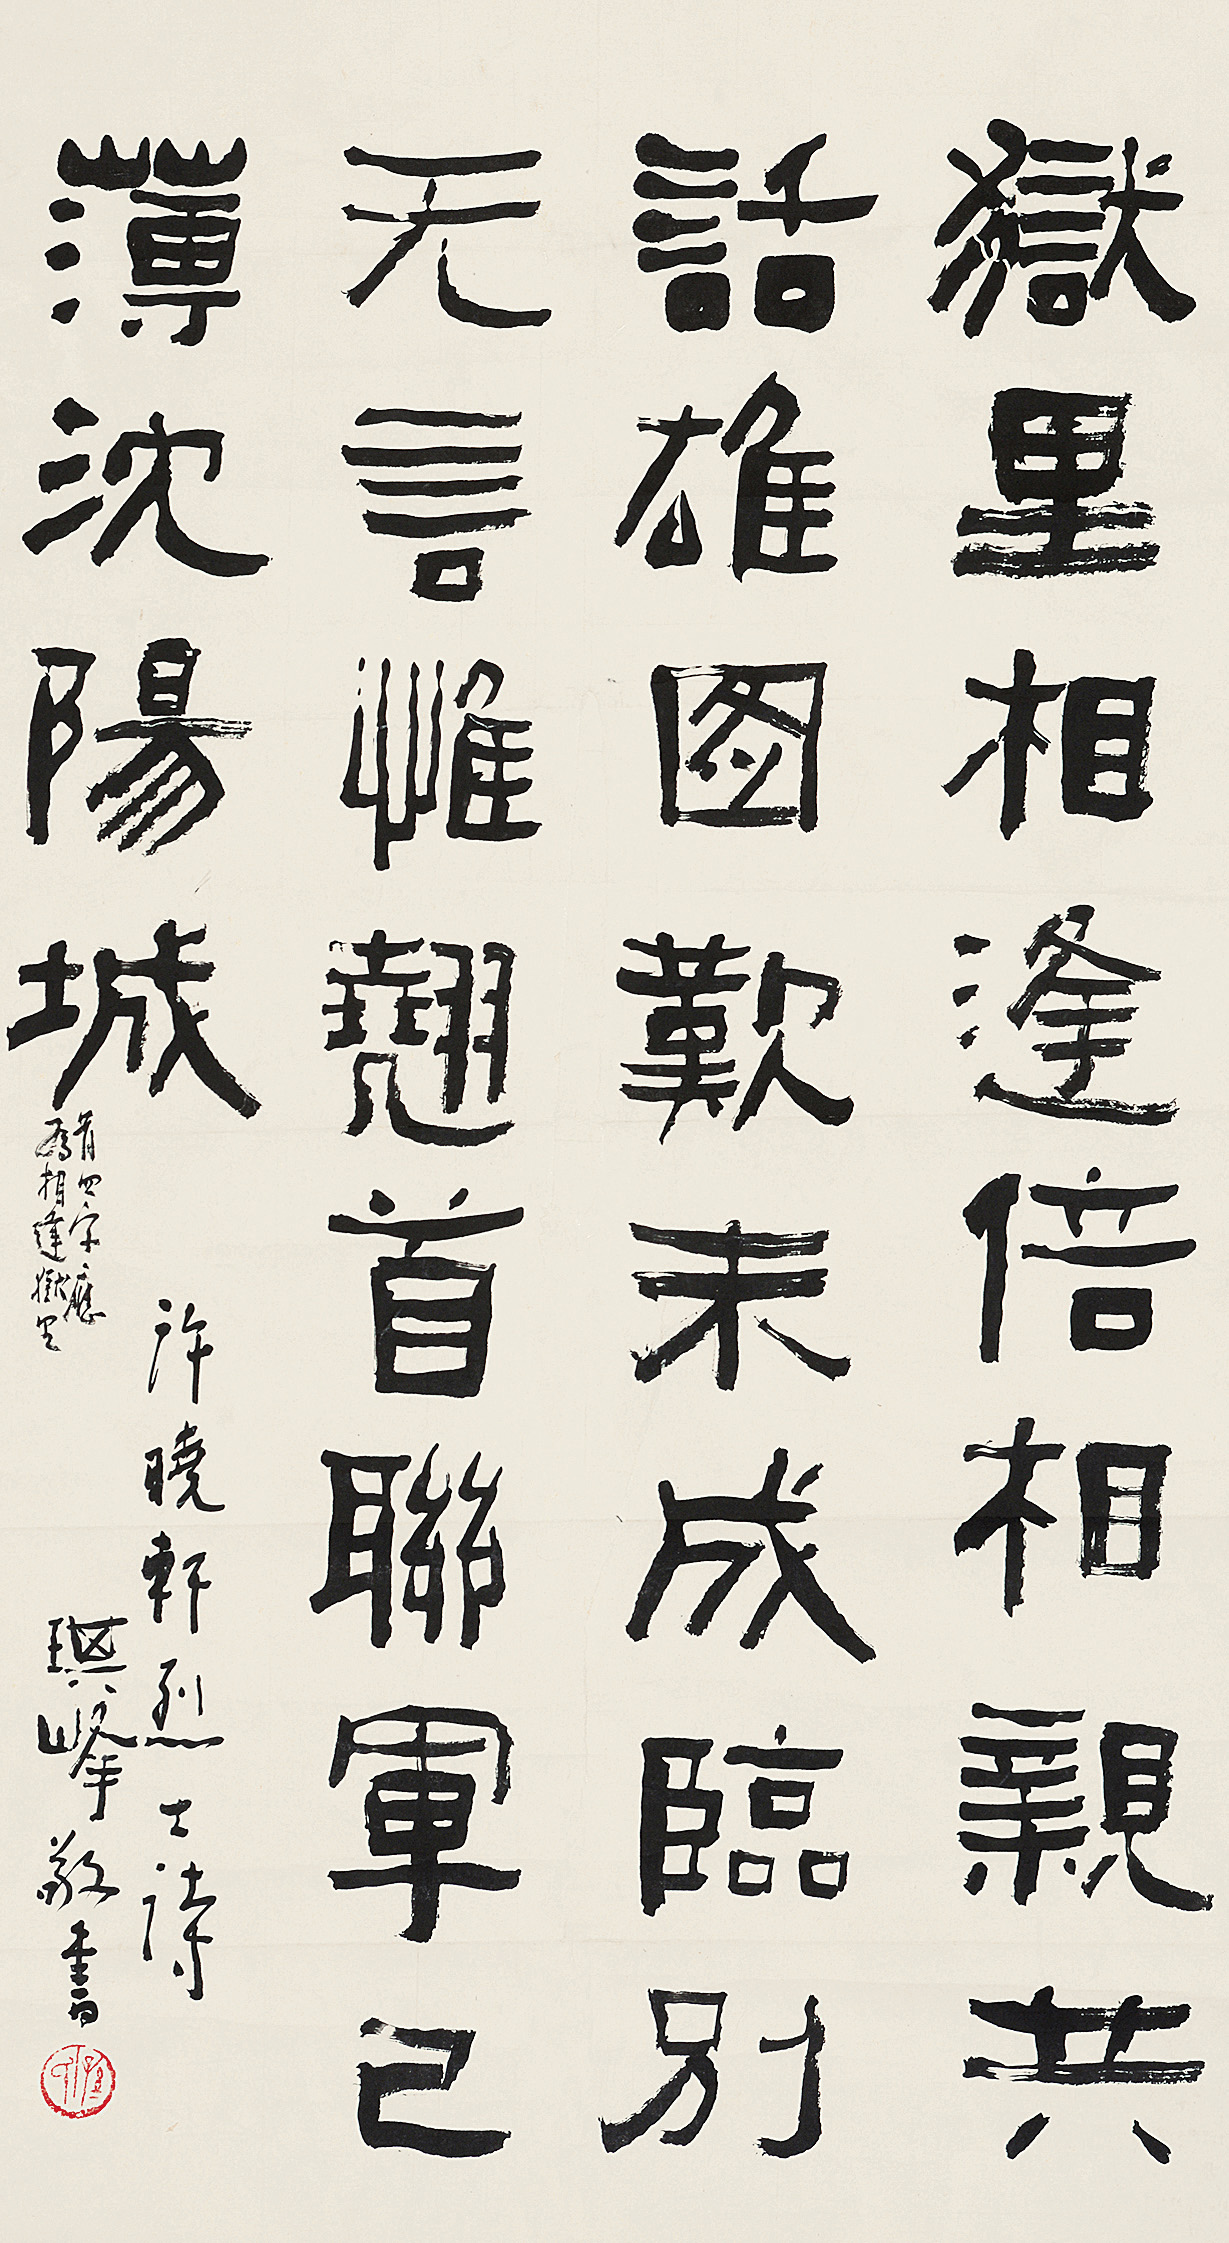 獄里相逢倍相親共
話雄图歎未成臨別
无言惟翹首聯軍已
薄沈陽城
首四字應
為相逢獄里
許曉軒烈士詩
璵峰敬書